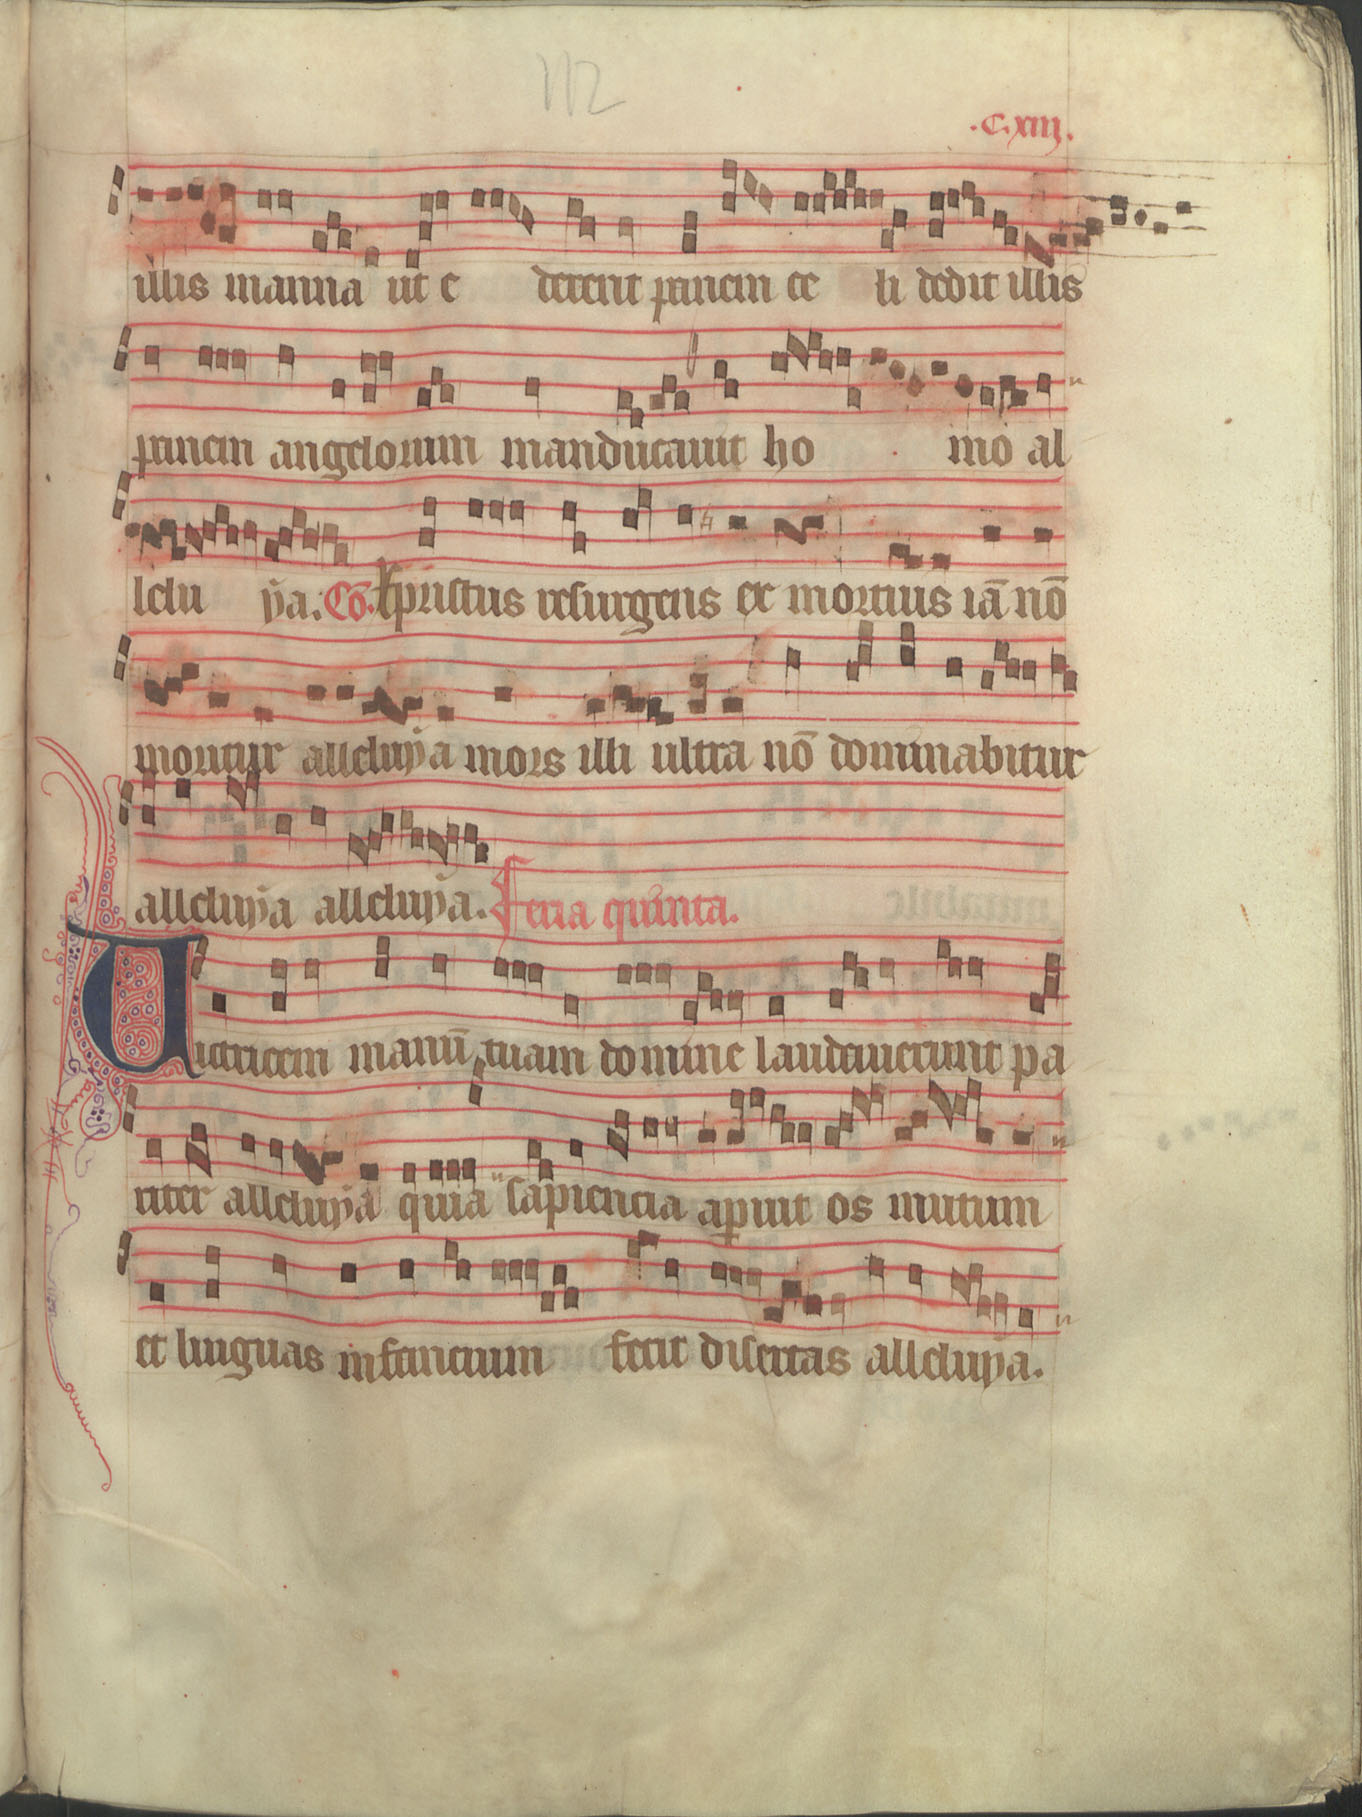 112
.C.xiii.
illis manna ut e derent panem ce li dedit illis
panem angelorum manducauit ho mo al
lelu ya. Co. Xpristus resurgens ex mortuis iā nō
moritur alleluya mors illi ultra nō dominabitur
alleluya alleluya. Feria quinta.
Uictricem manū tuam domine laudauerunt pa
riter alleluya quia sapiencia aperuit os mutum
et linguas infancium fecit disertas alleluya.